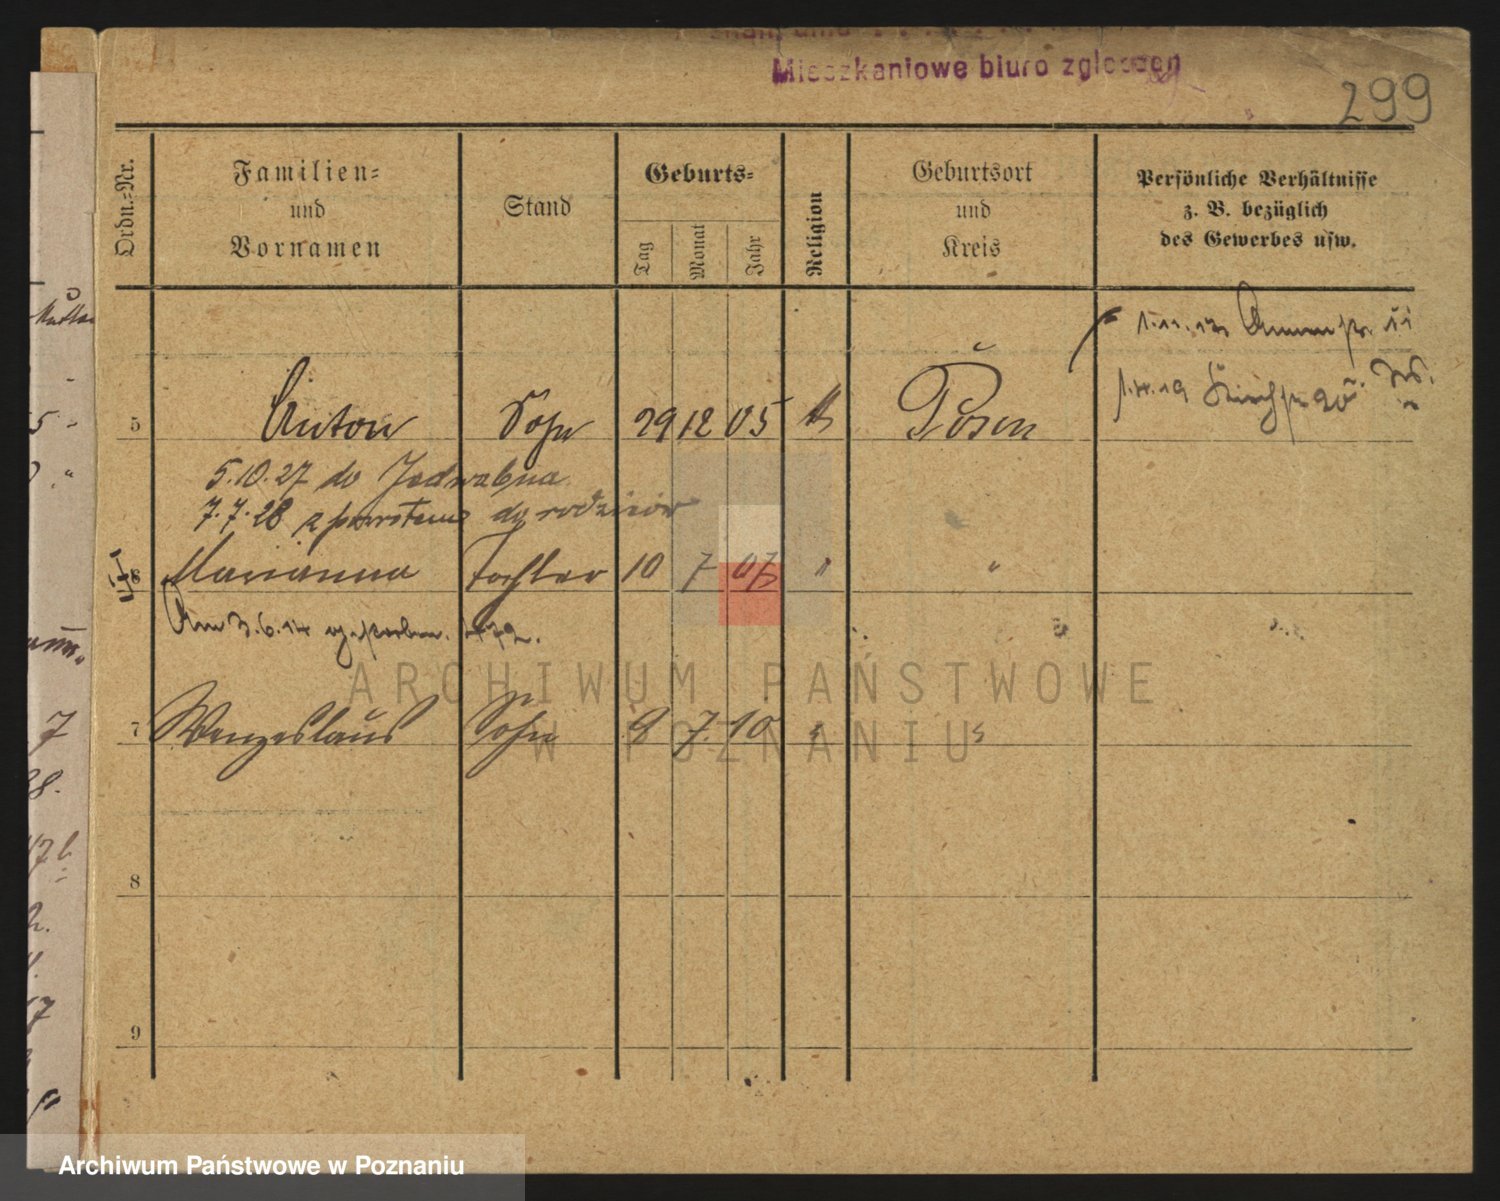 Mieszkaniowe biuro zgłoszeń
299
Ordn.-Nr.
Familien-
und
Vornamen
Stand
Geburts-
Tag
Monat
Jahr
Religion
Geburtsort
und
Kreis
Persönliche Verhältnisse
z. B. bezüglich
des Gewerbes usw.
1.11.12
5 Anton Sohn 29 12 05 k Posen
5.10.27 do Jedwabna
7.7.28 z powrotem do rodziców
6 Marianna Tochter 10 7 07 " "
Am 3.6.14 gestorben. 1472.
7 Wenzeslaus Sohn 9 7. 10 " "
8
9
ARCHIWUM PAŃSTWOWE
W POZNANIU
Archiwum Państwowe w Poznaniu